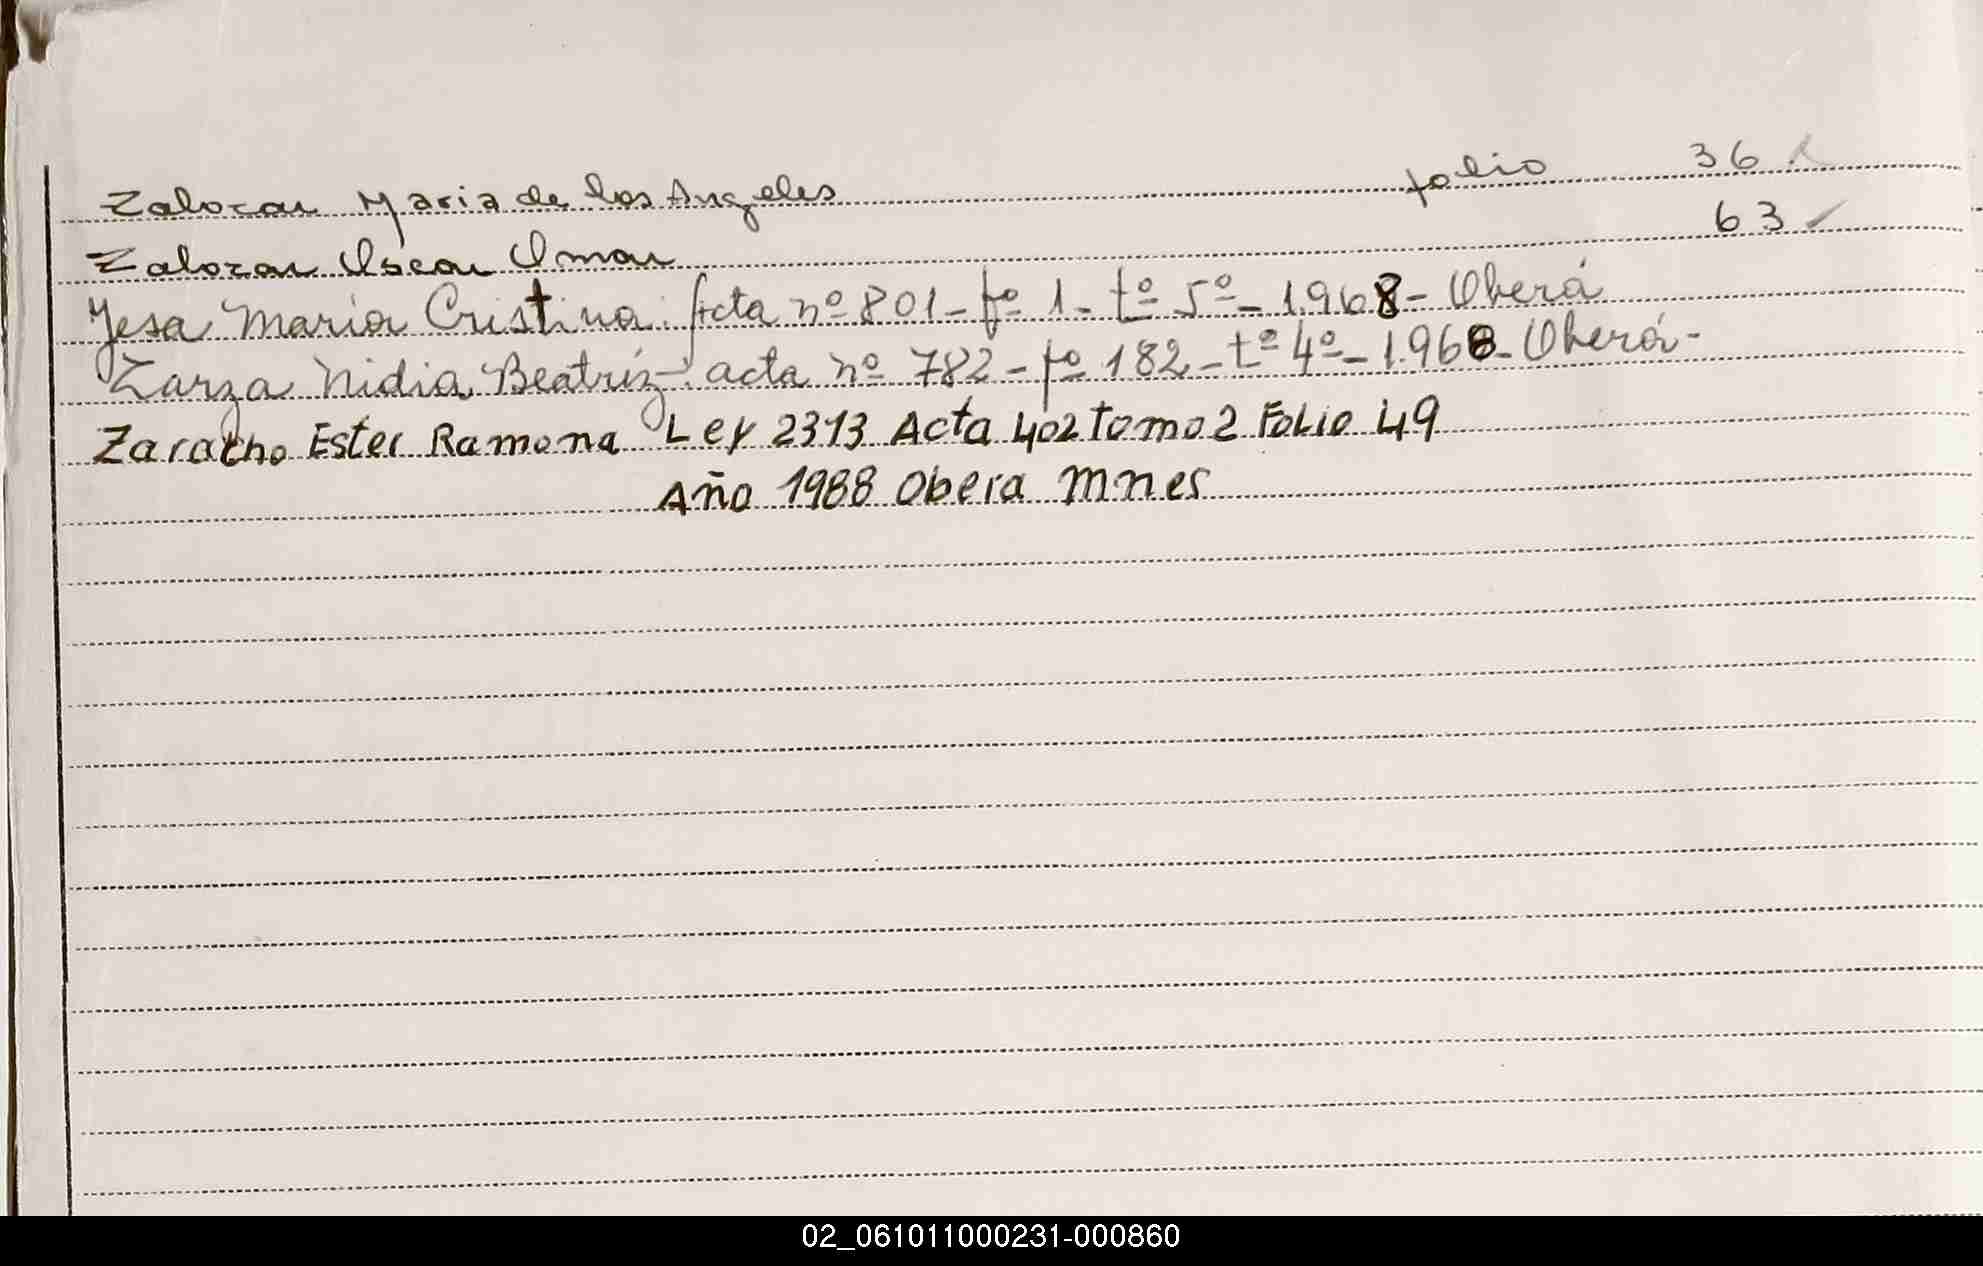 Zalozar Maria de los Angeles folio 36
Zalozar Oscar Omar 63
Yesa Maria Cristina. Acta nº 801 - fº 1 - tº 5º - 1.968 - Oberá
Zarza Nidia Beatríz - acta nº 782 - fº 182 - tº 4º - 1.968 - Oberá -
Zaracho Ester Ramona Ley 2313 Acta 402 Tomo 2 Folio 49
Año 1988 Obera Mnes
02_061011000231-000860